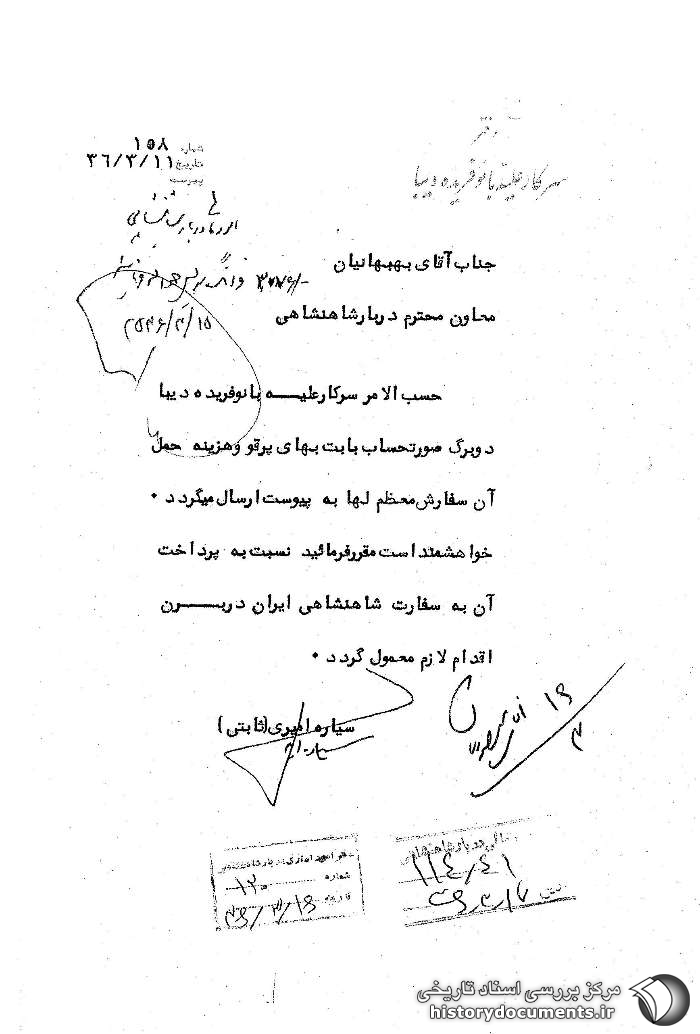 دفتر
سرکار علیه بانو فریده دیبا
شماره ۱۵۸
تاریخ ۳۶/۳/۱۱
پیوست
جناب آقای بهبهانیان
۳۰۷۶/- فرانک سویس
معاون محترم دربار شاهنشاهی
۲۵۳۶/۳/۱۵
حسب الامر سرکار علیــــه بانو فریده دیبا
دو برگ صورتحساب بابت بهای پرقو و هزینه حمل
آن سفارش معظم لها به پیوست ارسال میگردد ۰
خواهشمند است مقرر فرمائید نسبت به پرداخت
آن به سفارت شاهنشاهی ایران در بـــرن
اقدام لازم معمول گردد ۰
سیاره امیری (ثابتی)
۱۶
۳
دفتر امور اداری دربار شاهنشاهی
شماره ۱۲۰
تاریخ ۳۶/۳/۱۶
مالی دربار شاهنشاهی
۱۱۴۰۴۱
۳۶,۳,۱۷
مرکز بررسی اسناد تاریخی
historydocuments.ir